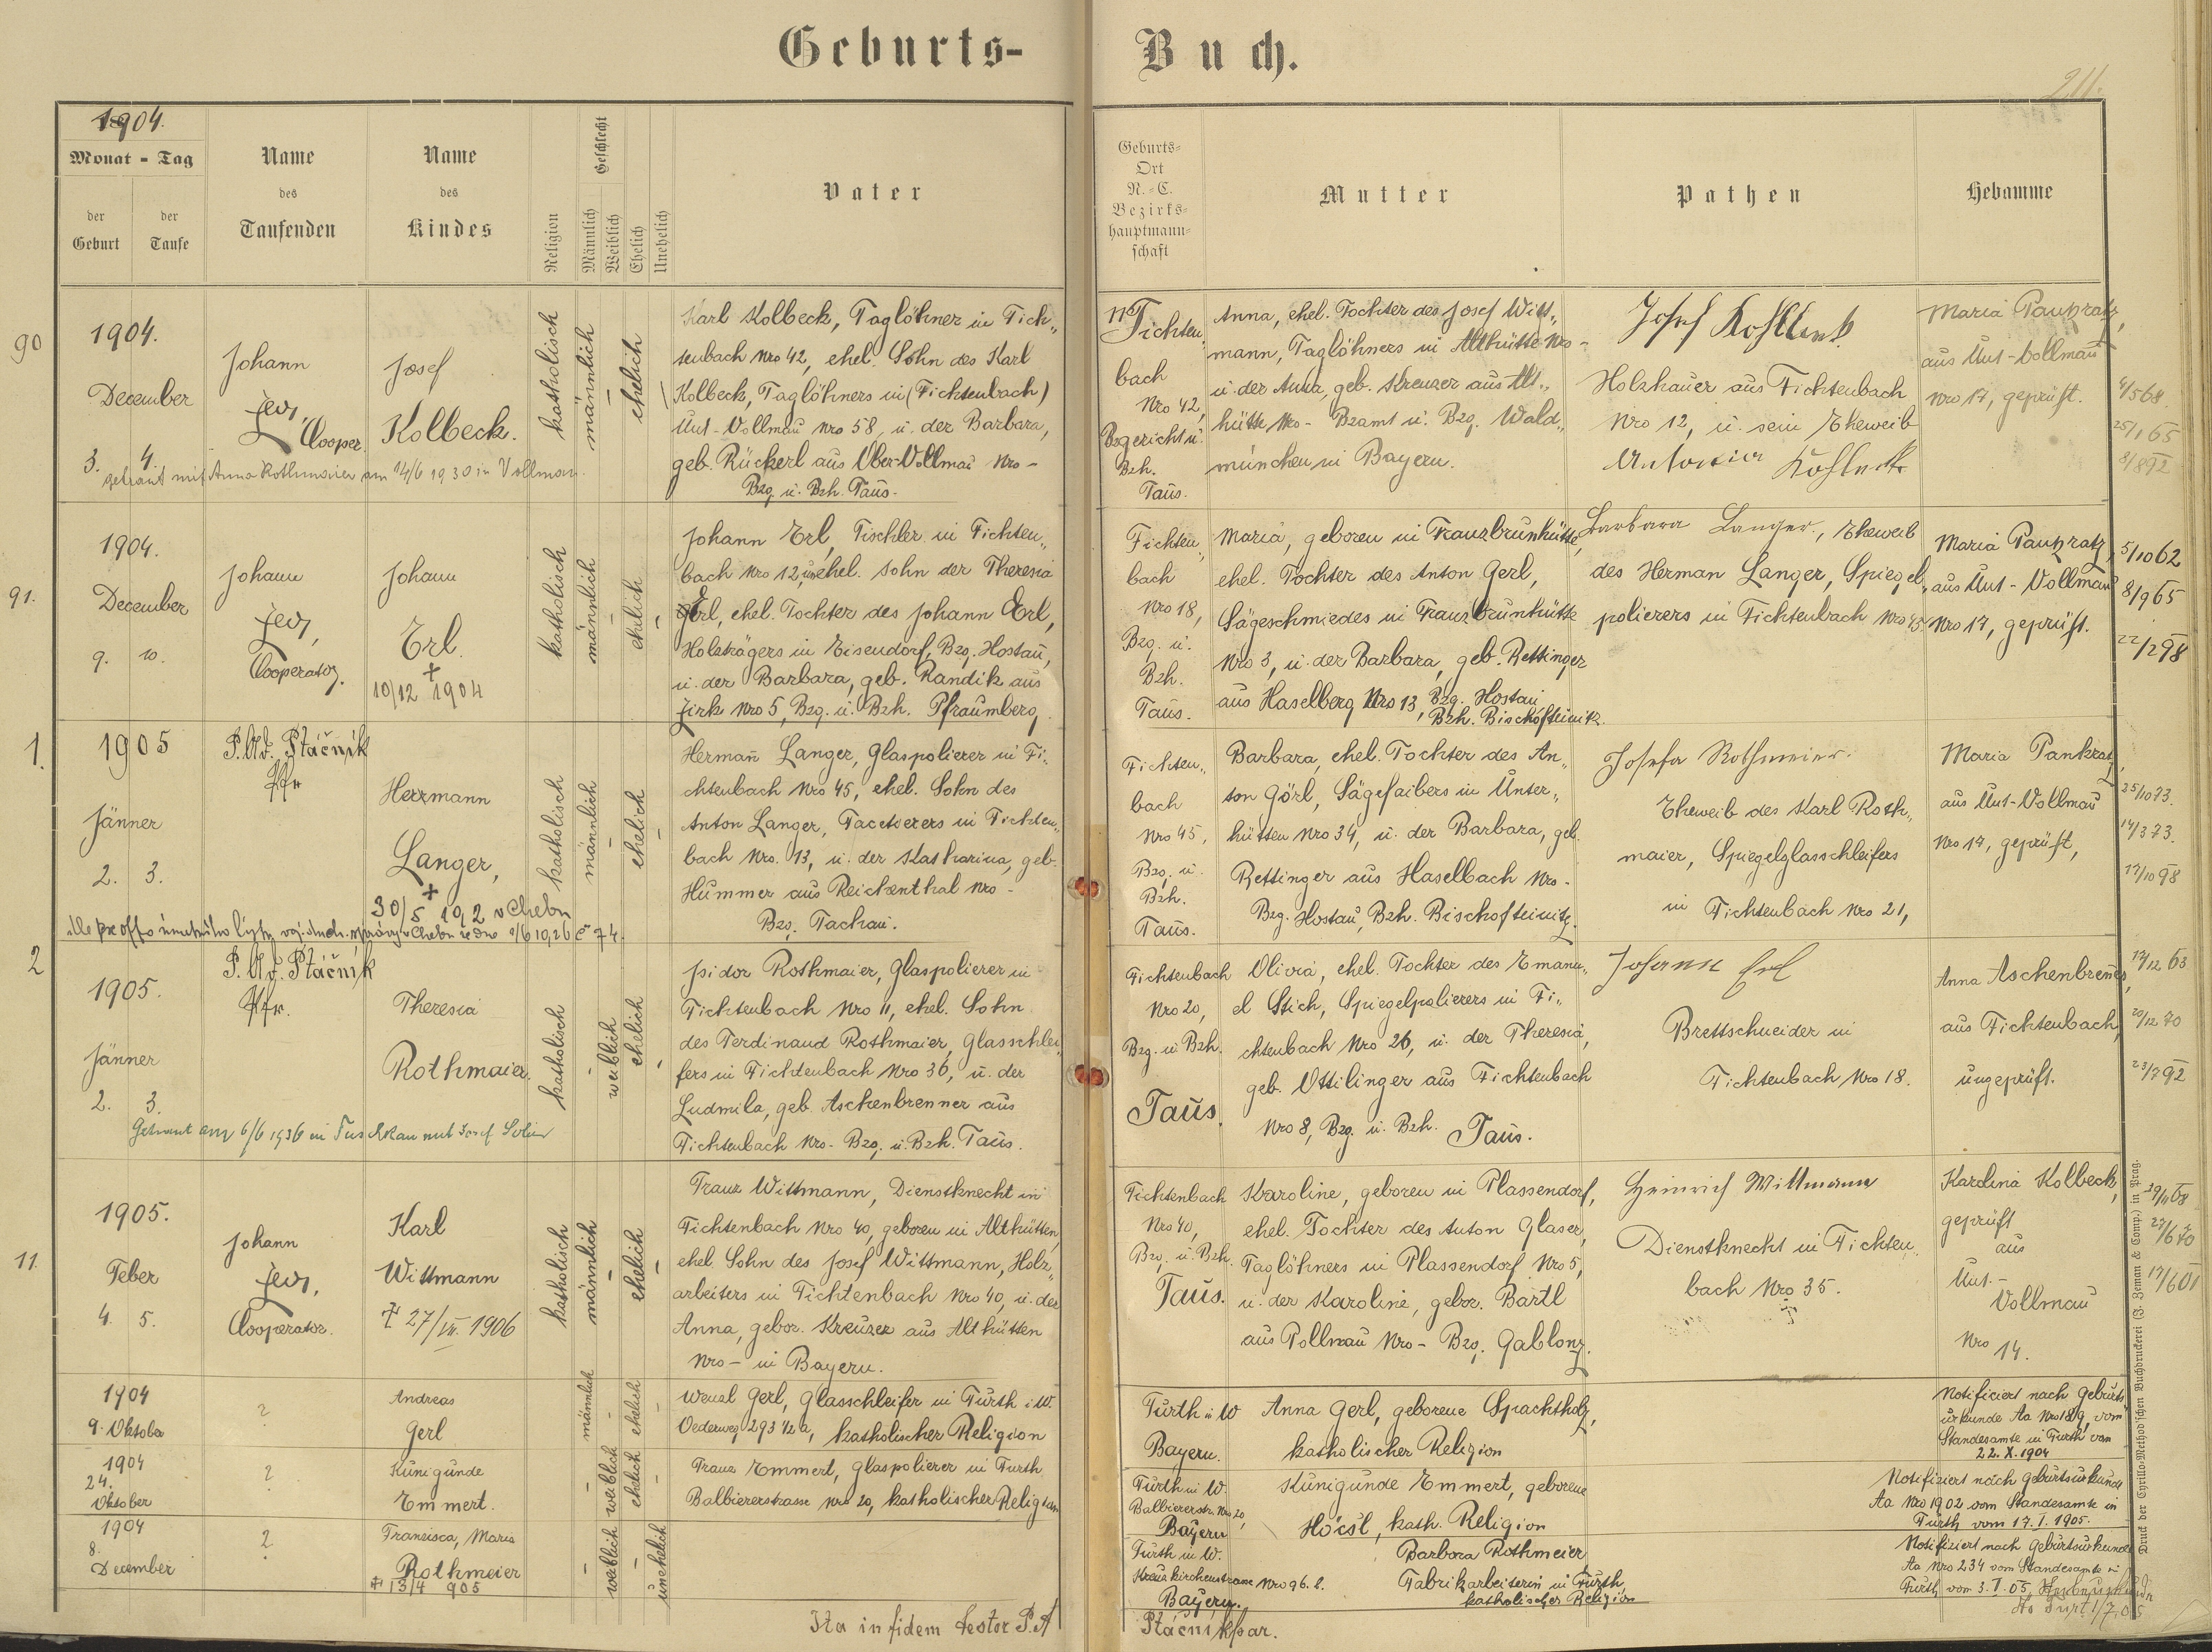 Geburts-Buch.
211.
1904.
Monat - Tag
der Geburt
der Taufe
Name des Taufenden
Name des Kindes
Religion
Geschlecht
Männlich
Weiblich
Ehelich
Unehelich
Vater
Geburts-
Ort
N.-C.
Bezirks-
hauptmann-
schaft
Mutter
Pathen
Hebamme
90
1904.
December
3. 4.
Johann
Jeoz,
Cooper.
Josef
Kolbeck.
katholisch
männlich
ehelich
Karl Kolbeck, Taglöhner in Fich„
tenbach Nro 42, ehel. Sohn des Karl
Kolbeck, Taglöhners in (Fichtenbach)
Unt-Vollmaŭ Nro 58, ŭ. der Barbara,
geb. Rückerl aus Ober-Vollmaŭ Nro -
Bzg. ŭ. Bzh. Taŭs.
getraut mit Anna Rothmaier am 14/6 1930 in Vollmau.
Fichten„
bach
Nro 42,
Bzgericht ŭ.
Bzh.
Taŭs.
Anna, ehel. Tochter des Josef Witt„
mann, Taglöhners in Althütte Nro -
ŭ. der Anna, geb. Kreuzer aus Alt„
hütte Nro - Bzamt ŭ. Bzg. Wald„
münchen in Bayern.
Josef Kohlbeck
Holzhauer aus Fichtenbach
Nro 12, ŭ. sein Eheweib
Antonia Kohlbeck
Maria Pankratz,
aus Unt-Vollmaŭ
Nro 17, geprüft.
4/5 68.
25/1 65
8/8 92
91.
1904.
December
9. 10.
Johann
Jeoz,
Cooperator.
Johann
Erl.
+
10/12 1904
katholisch
männlich
ehelich
Johann Erl, Tischler in Fichten„
bach Nro 12, unehel. Sohn der Theresia
Erl, ehel. Tochter des Johann Erl,
Holzträgers in Eisendorf, Bzg. Hostaŭ,
ŭ. der Barbara, geb. Randik aus
Zirk Nro 5, Bzg. ŭ. Bzh. Pfraŭmberg.
Fichten„
bach
Nro 18,
Bzg. ŭ.
Bzh.
Taŭs.
Maria, geboren in Franzbrunhütte,
ehel. Tochter des Anton Gerl,
Sägeschmiedes in Franzbrunhütte
Nro 3, ŭ. der Barbara, geb. Rettinger
aus Haselberg Nro 13, Bzg. Hostaŭ
Bzh. Bischofteinitz.
Barbara Langer, Eheweib
des Herman Langer, Spiegel„
polierers in Fichtenbach Nro 45
Maria Pankratz,
aus Unt-Vollmaŭ
Nro 17, geprüft.
5/10 62
8/9 65
22/2 98
1.
1905
Jänner
2. 3.
P. Ad. Ptáčník
Pfr.
Herrmann
Langer,
+
30/5 1902 v Chebu
katholisch
männlich
ehelich
Herman̄ Langer, Glaspolierer in Fi„
chtenbach Nro 45, ehel. Sohn des
Anton Langer, Facetierers in Fichten„
bach Nro. 13, ŭ. der Katharina, geb.
Hummer aus Reichenthal Nro -
Bzg. Tachaŭ.
Fichten„
bach
Nro 45,
Bzg. ŭ.
Bzh.
Taŭs.
Barbara, ehel. Tochter des An„
ton Görl, Sägefaibers in Unter„
hütten Nro 34, ŭ. der Barbara, geb.
Rettinger aus Haselbach Nro -
Bzg. Hostaŭ, Bzh. Bischofteinitz.
Josefa Rothmeier.
Eheweib des Karl Roth„
maier, Spiegelglasschleifers
in Fichtenbach Nro 21,
Maria Pankratz,
aus Unt-Vollmaŭ
Nro 17, geprüft,
25/10 73.
14/3 73.
17/10 98
2
1905.
Jänner
2. 3.
P. Ad. Ptáčník
Pfr.
Theresia
Rothmaier.
katholisch
weiblich
ehelich
Isidor Rothmaier, Glaspolierer in
Fichtenbach Nro 11, ehel. Sohn
des Ferdinand Rothmaier, Glasschlei„
fers in Fichtenbach Nro 36, ŭ. der
Ludmila, geb. Aschenbrenner aus
Fichtenbach Nro - Bzg. ŭ. Bzh. Taŭs.
Getraut am 6/6 1936 in Tuschkau mit Josef
Fichtenbach
Nro 20,
Bzg. ŭ. Bzh.
Taŭs.
Olivia, ehel. Tochter des Emanu„
el Stich, Spiegelpolierers in Fi„
chtenbach Nro 26, ŭ. der Theresia,
geb. Ottilinger aus Fichtenbach
Nro 8, Bzg. ŭ. Bzh. Taŭs.
Johann Erl
Brettschneider in
Fichtenbach Nro 18.
Anna Aschenbren̄er,
aus Fichtenbach,
ŭngeprüft.
17/12 63
20/12 70
23/7 92
11.
1905.
Feber
4. 5.
Johann
Jeoz,
Cooperator.
Karl
Wittmann
+ 27/VII. 1906
katholisch
männlich
ehelich
Franz Wittmann, Dienstknecht in
Fichtenbach Nro 40, geboren in Althütten,
ehel. Sohn des Josef Wittmann, Holz„
arbeiters in Fichtenbach Nro 40, ŭ. der
Anna, gebor. Kreŭzer aus Althütten
Nro - in Bayern.
Fichtenbach
Nro 40,
Bzg. ŭ. Bzh.
Taŭs.
Karoline, geboren in Plassendorf,
ehel. Tochter des Anton Glaser,
Taglöhners in Plassendorf Nro 5,
ŭ. der Karoline, gebor. Bartl
aus Pollnaŭ Nro - Bzg. Gablonz.
Heinrich Wittmann
Dienstknecht in Fichten„
bach Nro 35.
Karolina Kolbeck,
geprüft
aus
Unt-
Vollmaŭ
Nro 14.
29/11 68
27/6 70
17/6 01
1904
9. Oktober
?
Andreas
Gerl
männlich
ehelich
Wenzl Gerl, Glasschleifer in Furth i. W.
Oederweg 293 1/2 a, katholischer Religion
Fŭrth i. W
Bayern.
Anna Gerl, geborene Spachtholz,
katholischer Religion
Notificiert nach Gebŭrts
ŭrkunde Aa Nro 189, vom
Standesamte in Fŭrth von
22. X. 1904
1904
24.
Oktober
?
Kŭnigunde
Emmert.
weiblich
ehelich
Franz Emmert, Glaspolierer in Furth
Balbiererstrasse Nro 20, katholischer Religion
Fŭrth in W.
Balbiererstr. Nro 20,
Bayern
Kŭnigŭnde Emmert, geborene
Höcsl, kath. Religion
Notifiziert nach Gebŭrtsŭrkunde
Aa Nro 1902 vom Standesamte in
Fŭrth vom 17. I. 1905.
1904
8.
December
?
Franzisca, Maria
Rothmeier
+ 13/4 905
weiblich
ŭnehelich
Fŭrth in W.
Kreuzkirchenstrasse Nro 96. l.
Bayern.
Barbara Rothmeier
Fabrikarbeiterin in Fŭrth,
katholischer Religion
Notifiziert nach Gebŭrtsŭrkunde
Aa Nro 234 vom Standesamte in
Fŭrth vom 3. I. 05,
Ita in fidem testor P. A
Ptáčník par.
Druck der Cyrillo-Method'schen Buchdruckerei (J. Zeman & Comp.) in Prag.